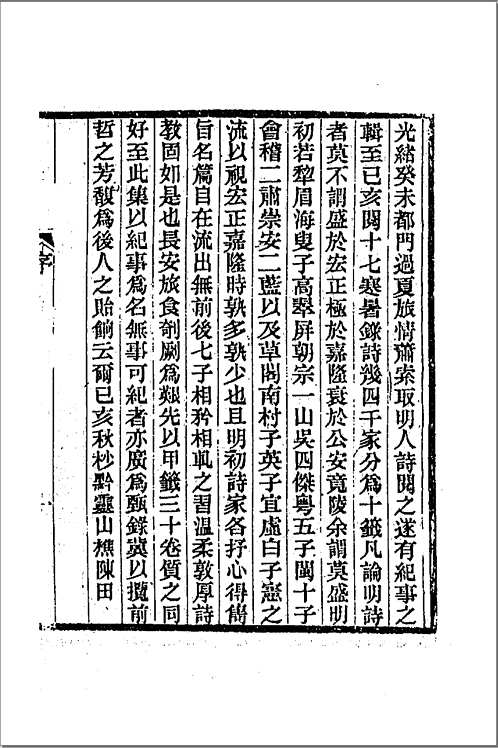 光緒癸未都門過夏旅情蕭索取明人詩閱之遂有紀事之
輯至己亥閱十七寒暑錄詩幾四千家分為十籤凡論明詩
者莫不謂盛於宏正極於嘉隆衰於公安竟陵余謂莫盛明
初若犂眉海叟子高翠屏朝宗一山吳四傑粵五子閩十子
會稽二肅崇安二藍以及草閣南村子英子宜虛白子憲之
流以視宏正嘉隆時孰多孰少也且明初詩家各抒心得雋
旨名篇自在流出無前後七子相矜相軋之習溫柔敦厚詩
教固如是也長安旅食剞劂為艱先以甲籤三十卷質之同
好至此集以紀事為名無事可紀者亦廣為甄錄冀以攬前
哲之芳馥為後人之貽餉云爾己亥秋杪黔靈山樵陳田
序